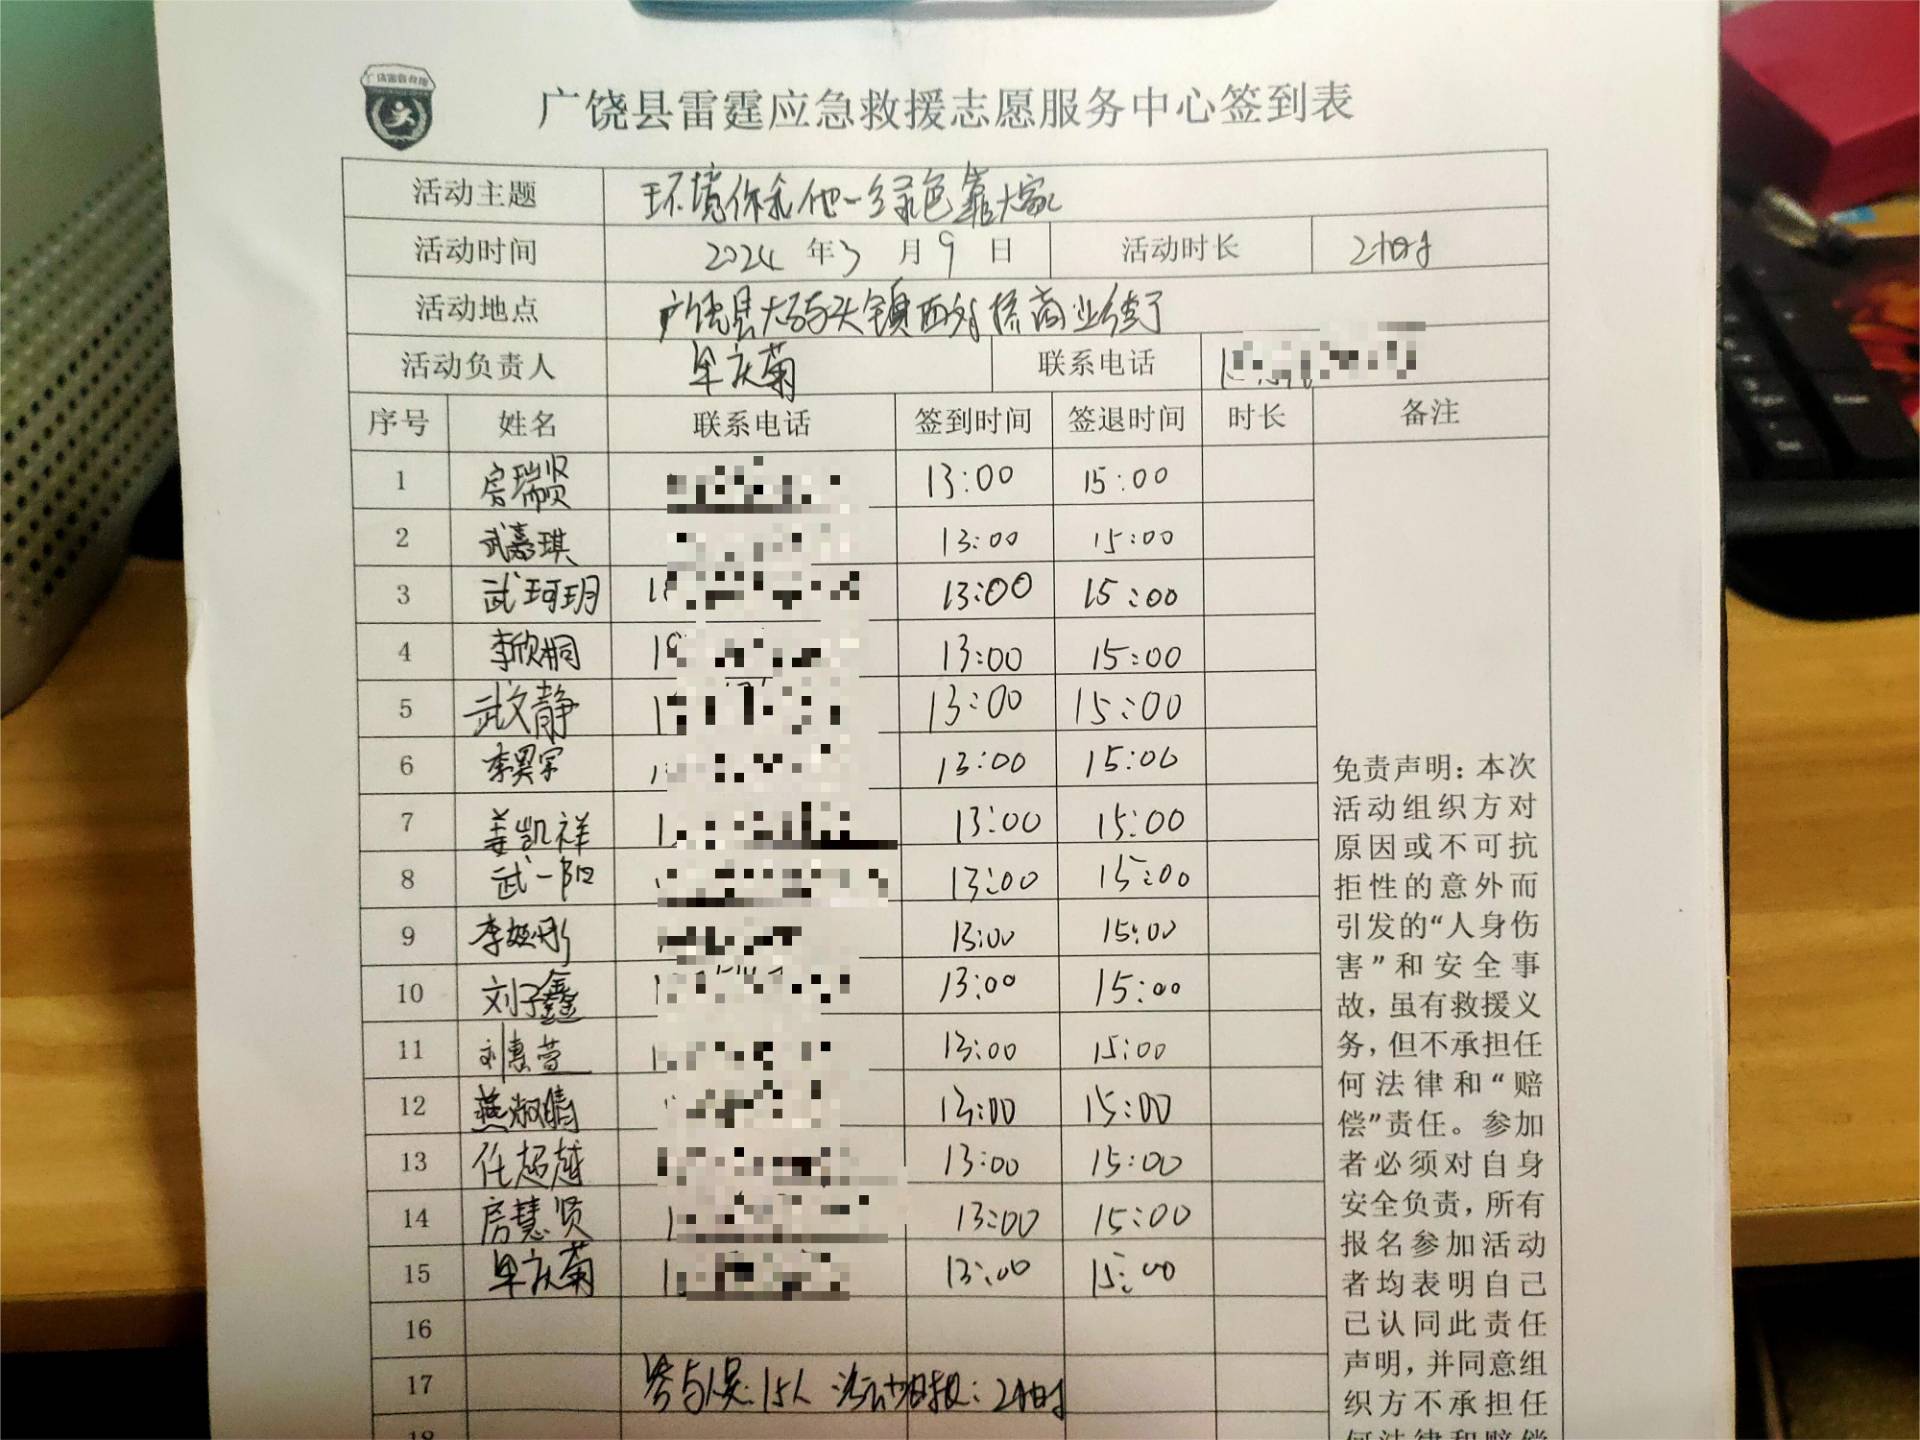 广饶县雷霆应急救援志愿服务中心签到表
活动主题 环境你我他一绿色靠大家
活动时间 2024 年 3 月 9 日 活动时长 2小时
活动地点 广饶县大码头镇西刘桥商业街
活动负责人 牟庆菊 联系电话
序号 姓名 联系电话 签到时间 签退时间 时长 备注
1 房瑞贤 13:00 15:00
2 武嘉琪 13:00 15:00
3 武珂玥 13:00 15:00
4 李欣桐 13:00 15:00
5 武文静 13:00 15:00
6 李昊宇 13:00 15:00
7 姜凯祥 13:00 15:00
8 武一阳 13:00 15:00
9 13:00 15:00
10 刘子鑫 13:00 15:00
11 刘惠萱 13:00 15:00
12 燕淑晴 13:00 15:00
13 任超越 13:00 15:00
14 房慧贤 13:00 15:00
15 牟庆菊 13:00 15:00
16
17 参与人员:15人 活动时长:2小时
18
免责声明：本次
活动组织方对
原因或不可抗
拒性的意外而
引发的“人身伤
害”和安全事
故，虽有救援义
务，但不承担任
何法律和“赔
偿”责任。参加
者必须对自身
安全负责，所有
报名参加活动
者均表明自己
已认同此责任
声明，并同意组
织方不承担任
何法律和赔偿